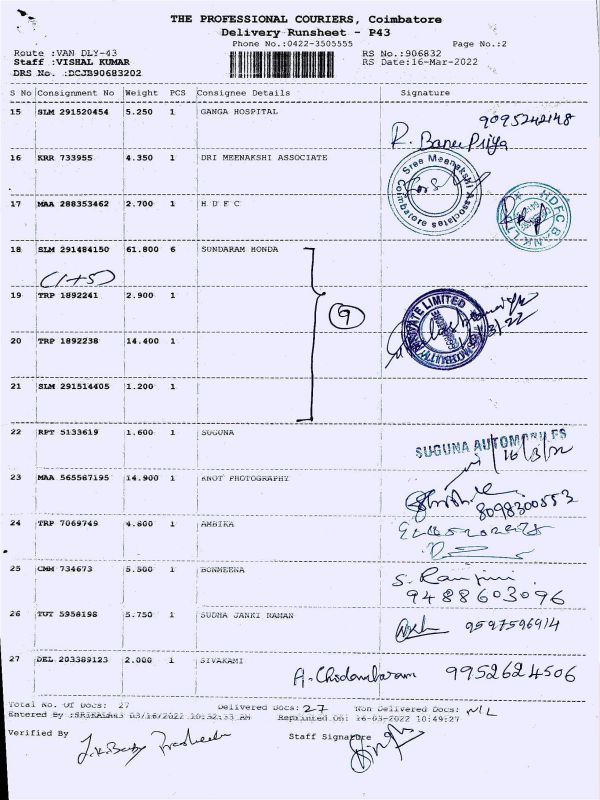 THE PROFESSIONAL COURIERS, Coimbatore
Delivery Runsheet - P43
Phone No.:0422-3505555 Page No.:2
Route :VAN DLY-43 RS No.:906832
Staff :VISHAL KUMAR RS Date:16-Mar-2022
DRS No. :DCJB90683202
S No Consignment No Weight PCS Consignee Details Signature
15 SLM 291520454 5.250 1 GANGA HOSPITAL
9095242148
R. Banu Priya
16 KRR 733955 4.350 1 DRI MEENAKSHI ASSOCIATE
Sree Meenakshi Associates
Coimbatore
For
17 MAA 288353462 2.700 1 H D F C
HDFC BANK LTD
18 SLM 291484150 61.800 6 SUNDARAM HONDA
(1+5)
19 TRP 1892241 2.900 1
9
LIMITED
20 TRP 1892238 14.400 1
21 SLM 291514405 1.200 1
22 RPT 5133619 1.600 1 SUGUNA
SUGUNA AUTOMOBILES
16/3/22
23 MAA 565587195 14.900 1 KNOT PHOTOGRAPHY
8098300553
24 TRP 7069749 4.800 1 AMBIKA
25 CMM 734673 5.500 1 BONMEENA
S. Ranjini
9488603096
26 TUT 5958198 5.750 1 SUDHA JANKI RAMAN
9597596914
27 DEL 203389123 2.000 1 SIVAKAMI
A. Chidambaram 9952624506
Total No. Of Docs: 27 Delivered Docs: 27 Non Delivered Docs: NIL
Entered By :SRIKALA3 03/16/2022 10:32:33 AM Reprinted On: 16-03-2022 10:49:27
Verified By Staff Signature